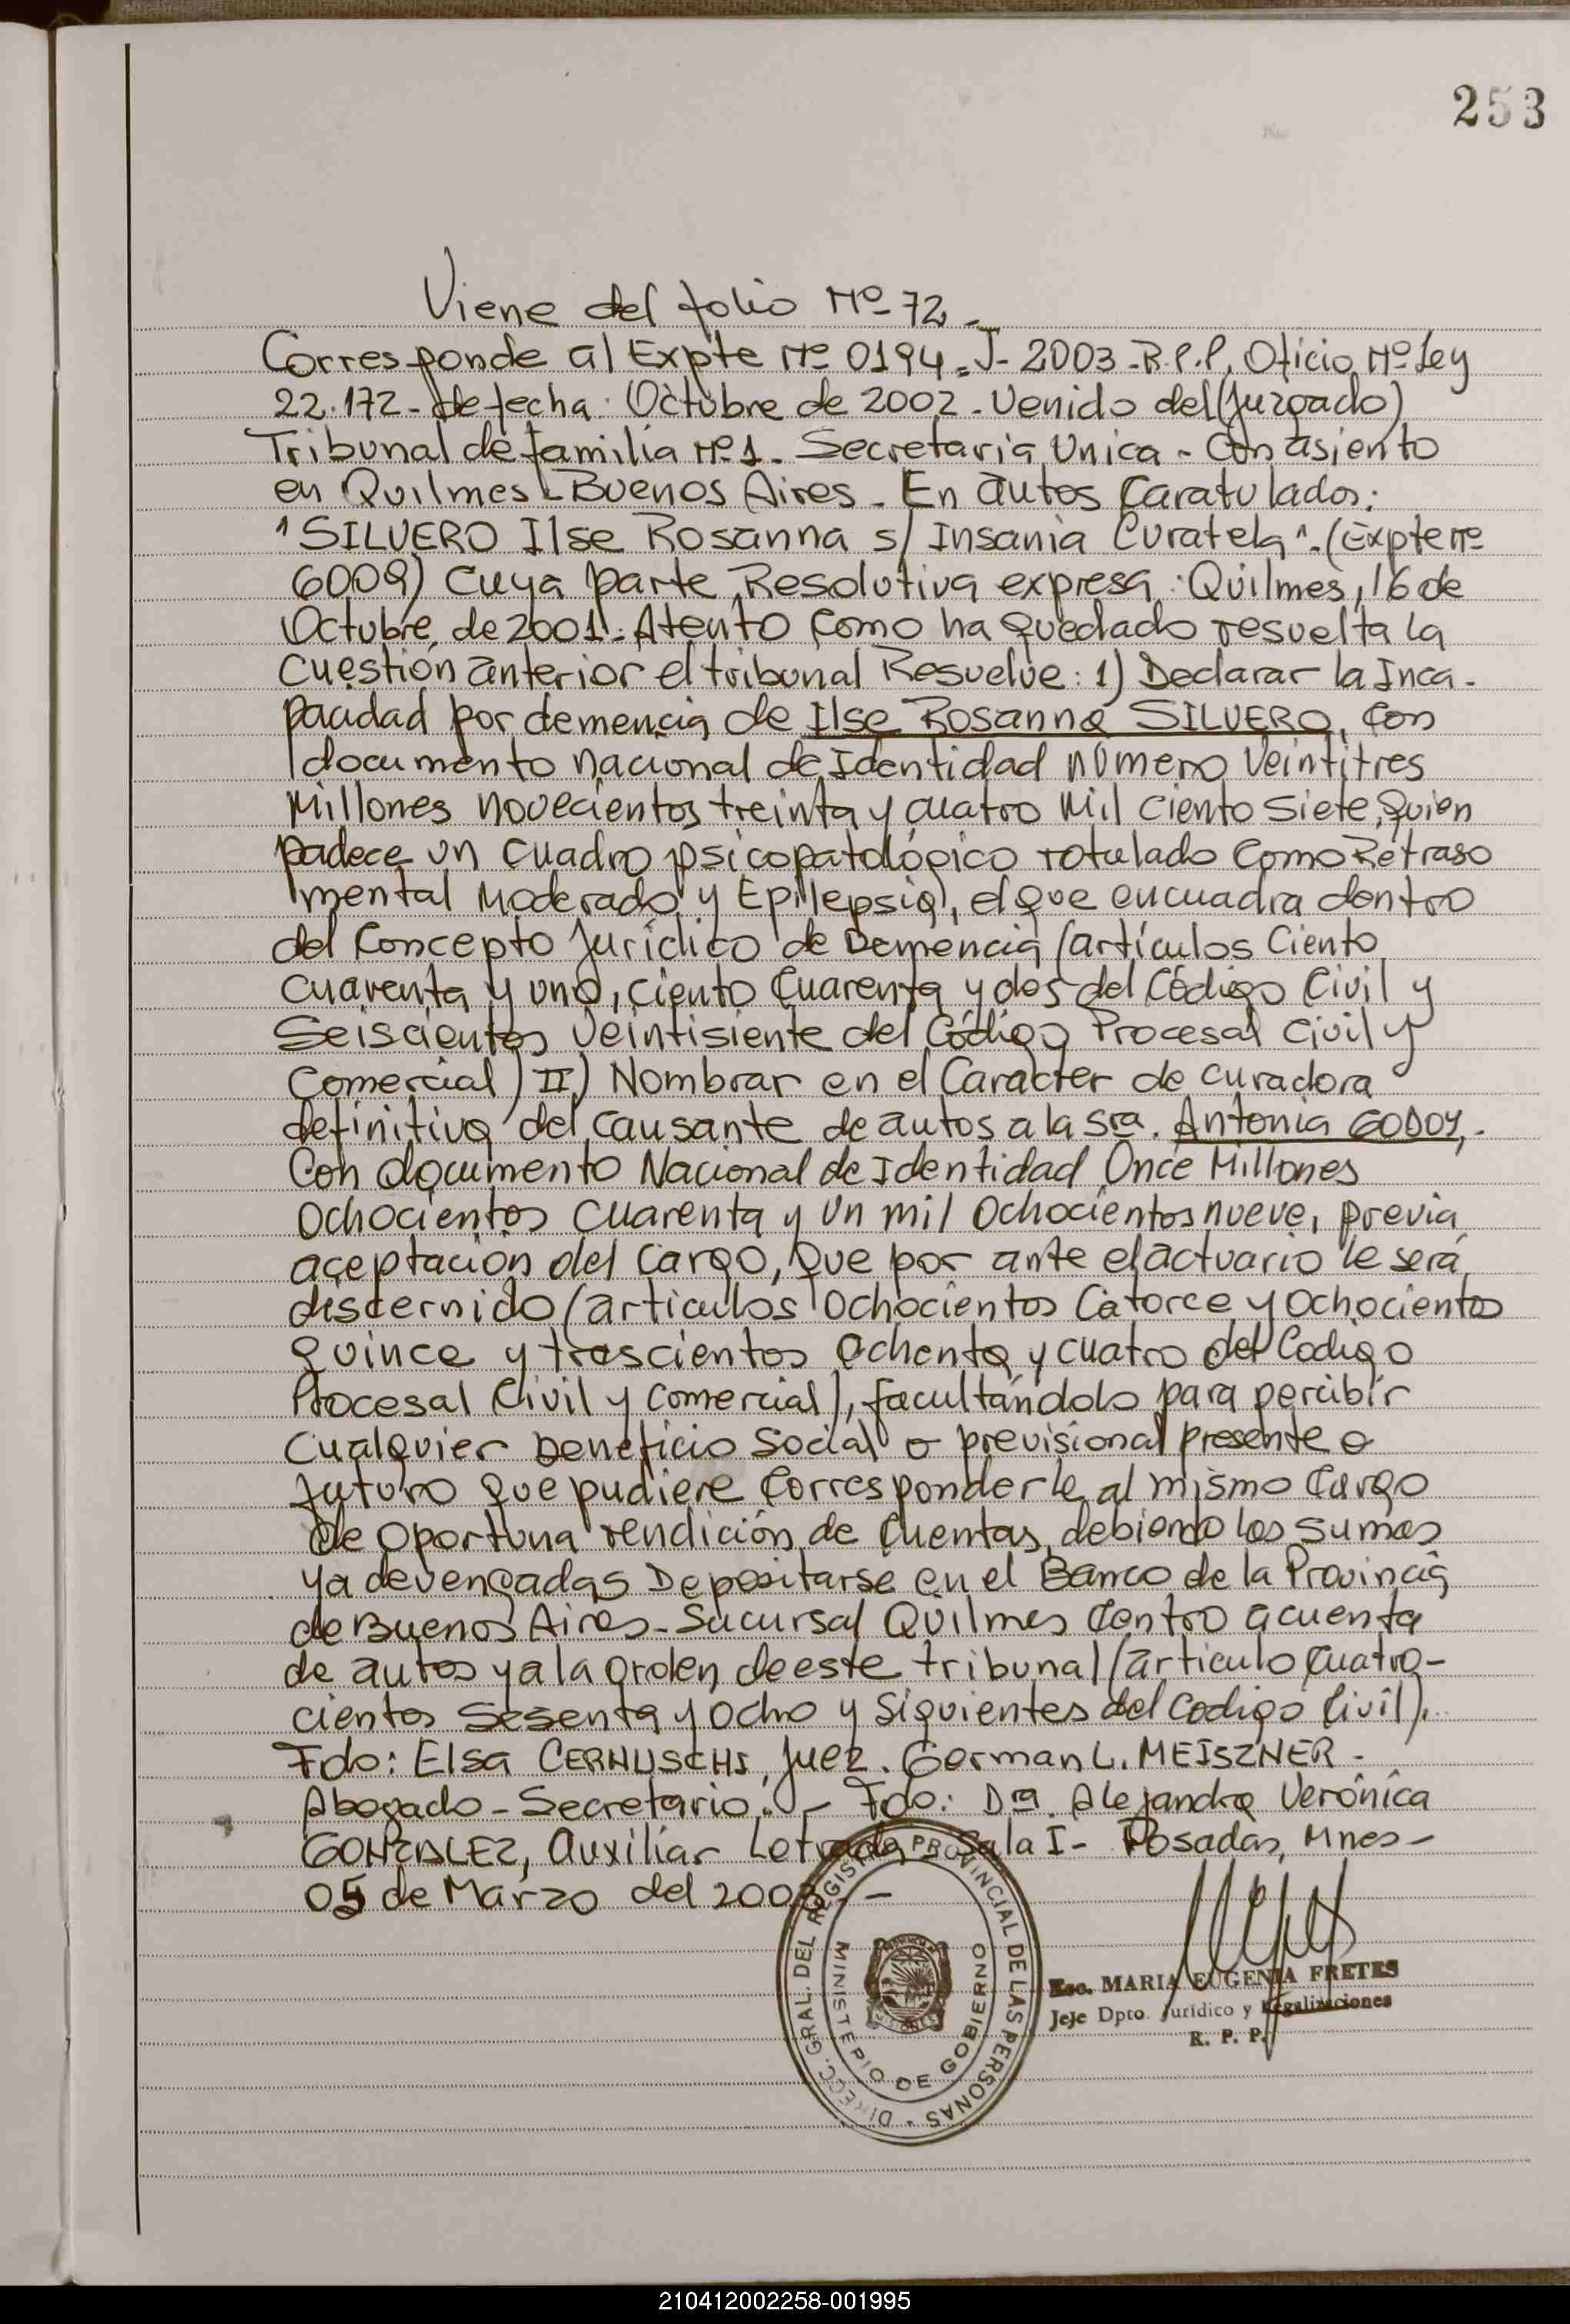 253
Viene del folio Nº 72.-
Corresponde al Expte Nº 0194-J-2003-R.P.P. Oficio Nº Ley
22.172- de fecha: Octubre de 2002. Venido del (Juzgado)
Tribunal de familia Nº 1. Secretaria Unica - Con asiento
en Quilmes - Buenos Aires. En autos Caratulados:
"SILVERO Ilse Rosanna s/ Insania Curatela". (Expte Nº
6009) Cuya parte Resolutiva expresa: Quilmes, 16 de
Octubre de 2001. Atento como ha quedado resuelta la
cuestión anterior el tribunal Resuelve: 1) Declarar la Inca-
pacidad por demencia de Ilse Rosanna SILVERO, con
documento nacional de Identidad número Veintitres
Millones novecientos treinta y cuatro mil ciento siete, quien
padece un cuadro psicopatológico rotulado como Retraso
mental Moderado y Epilepsia, el que encuadra dentro
del Concepto Jurídico de Demencia (artículos Ciento
cuarenta y uno, ciento cuarenta y dos del Código Civil y
Seiscientos Veintisiente del Código Procesal Civil y
Comercial) II) Nombrar en el Carácter de curadora
definitiva del causante de autos a la Sra. Antonia GODOY,-
Con documento Nacional de Identidad Once Millones
Ochocientos Cuarenta y Un mil Ochocientos nueve, previa
aceptación del Cargo, que por ante el actuario le será
discernido (articulos Ochocientos Catorce y Ochocientos
quince y trescientos Ochenta y cuatro del Codigo
Procesal Civil y Comercial), facultándolo para percibir
Cualquier beneficio Social o previsional presente o
futuro que pudiere Corresponderle al mismo Cargo
de Oportuna rendición de Cuentas, debiendo las sumas
ya devengadas Depositarse en el Banco de la Provincia
de Buenos Aires - Sucursal Quilmes Centro a cuenta
de autos y a la orden de este tribunal (artículo Cuatro-
cientos Sesenta y Ocho y siguientes del Codigo Civil).
Fdo: Elsa CERNUSCHI, Juez. German L. MEISZNER -
Abogado - Secretario. - Fdo: Dra. Alejandra Verónica
GONZALEZ, Auxiliar Letrada Sala I - Posadas, Mnes -
05 de Marzo del 2003. -
DIRECC. GRAL. DEL REGISTRO PROVINCIAL DE LAS PERSONAS
MINISTERIO DE GOBIERNO
Esc. MARIA EUGENIA FRETES
Jefe Dpto. Jurídico y Legalizaciones
R. P. P.
210412002258-001995